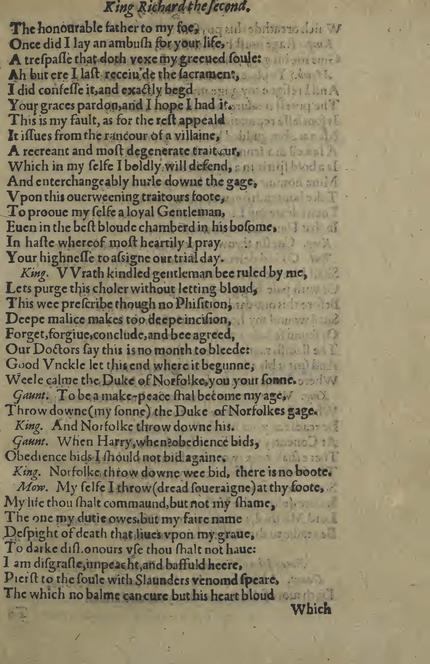 King Richard the second.
The honourable father to my foe,
Once did I lay an ambush for your life,
A trespasse that doth vexe my greeued soule:
Ah but ere I last receiu'de the sacrament,
I did confesse it, and exactly begd
Your graces pardon, and I hope I had it.
This is my fault, as for the rest appeald
It issues from the rancour of a villaine,
A recreant and most degenerate traitour,
Which in my selfe I boldly will defend,
And enterchangeably hurle downe the gage,
Vpon this ouerweening traitours foote,
To prooue my selfe a loyal Gentleman,
Euen in the best bloude chamberd in his bosome,
In haste whereof most heartily I pray
Your highnesse to assigne our trial day.
King. VVrath kindled gentleman bee ruled by me,
Lets purge this choler without letting bloud,
This wee prescribe though no Phisition,
Deepe malice makes too deepe incision,
Forget, forgiue, conclude, and bee agreed,
Our Doctors say this is no month to bleede:
Good Vnckle let this end where it begunne,
Weele calme the Duke of Norfolke, you your sonne.
Gaunt. To be a make-peace shal become my age,
Throw downe (my sonne) the Duke of Norfolkes gage.
King. And Norfolke throw downe his.
Gaunt. When Harry, when? obedience bids,
Obedience bids I should not bid againe.
King. Norfolke throw downe wee bid, there is no boote.
Mow. My selfe I throw (dread soueraigne) at thy foote,
My life thou shalt commaund, but not my shame,
The one my dutie owes, but my faire name
Despight of death that liues vpon my graue,
To darke dishonours vse thou shalt not haue:
I am disgraste, impeacht, and baffuld heere,
Pierst to the soule with Slaunders venomd speare,
The which no balme can cure but his heart bloud
Which